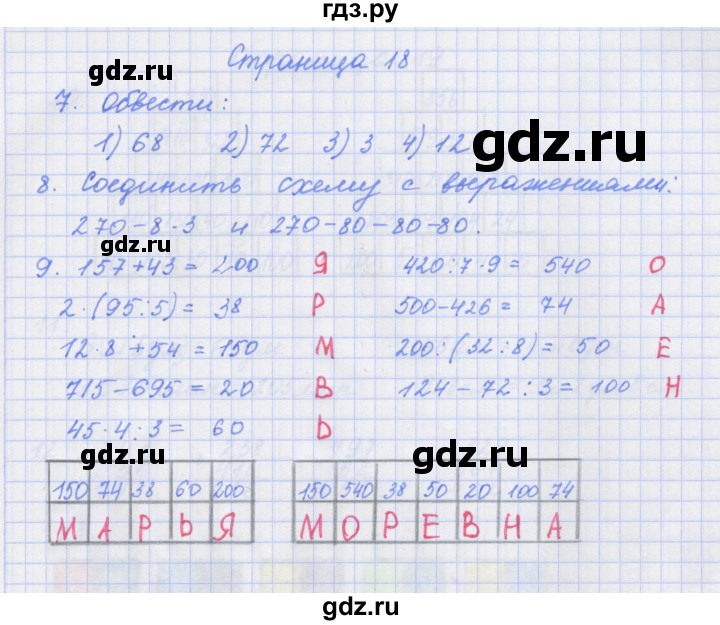 гдз.ру
Страница 18
gdz.ru
7. Обвести:
1) 68 2) 72 3) 3 4) 12
gdz.ru
8. Соединить схему с выражениями:
270-8·3 и 270-80-80-80.
gdz.ru
9. 157+43= 200 Я 420:7·9= 540 О
2·(95:5)= 38 Р 500-426= 74 А
12·8+54=150 М 200:(32:8)= 50 Е
715-695=20 В 124-72:3=100 Н
45·4:3= 60 Ь
gdz.ru gdz.ru
150 74 38 60 200 150 540 38 50 20 100 74
М А Р Ь Я М О Р Е В Н А
gdz.ru